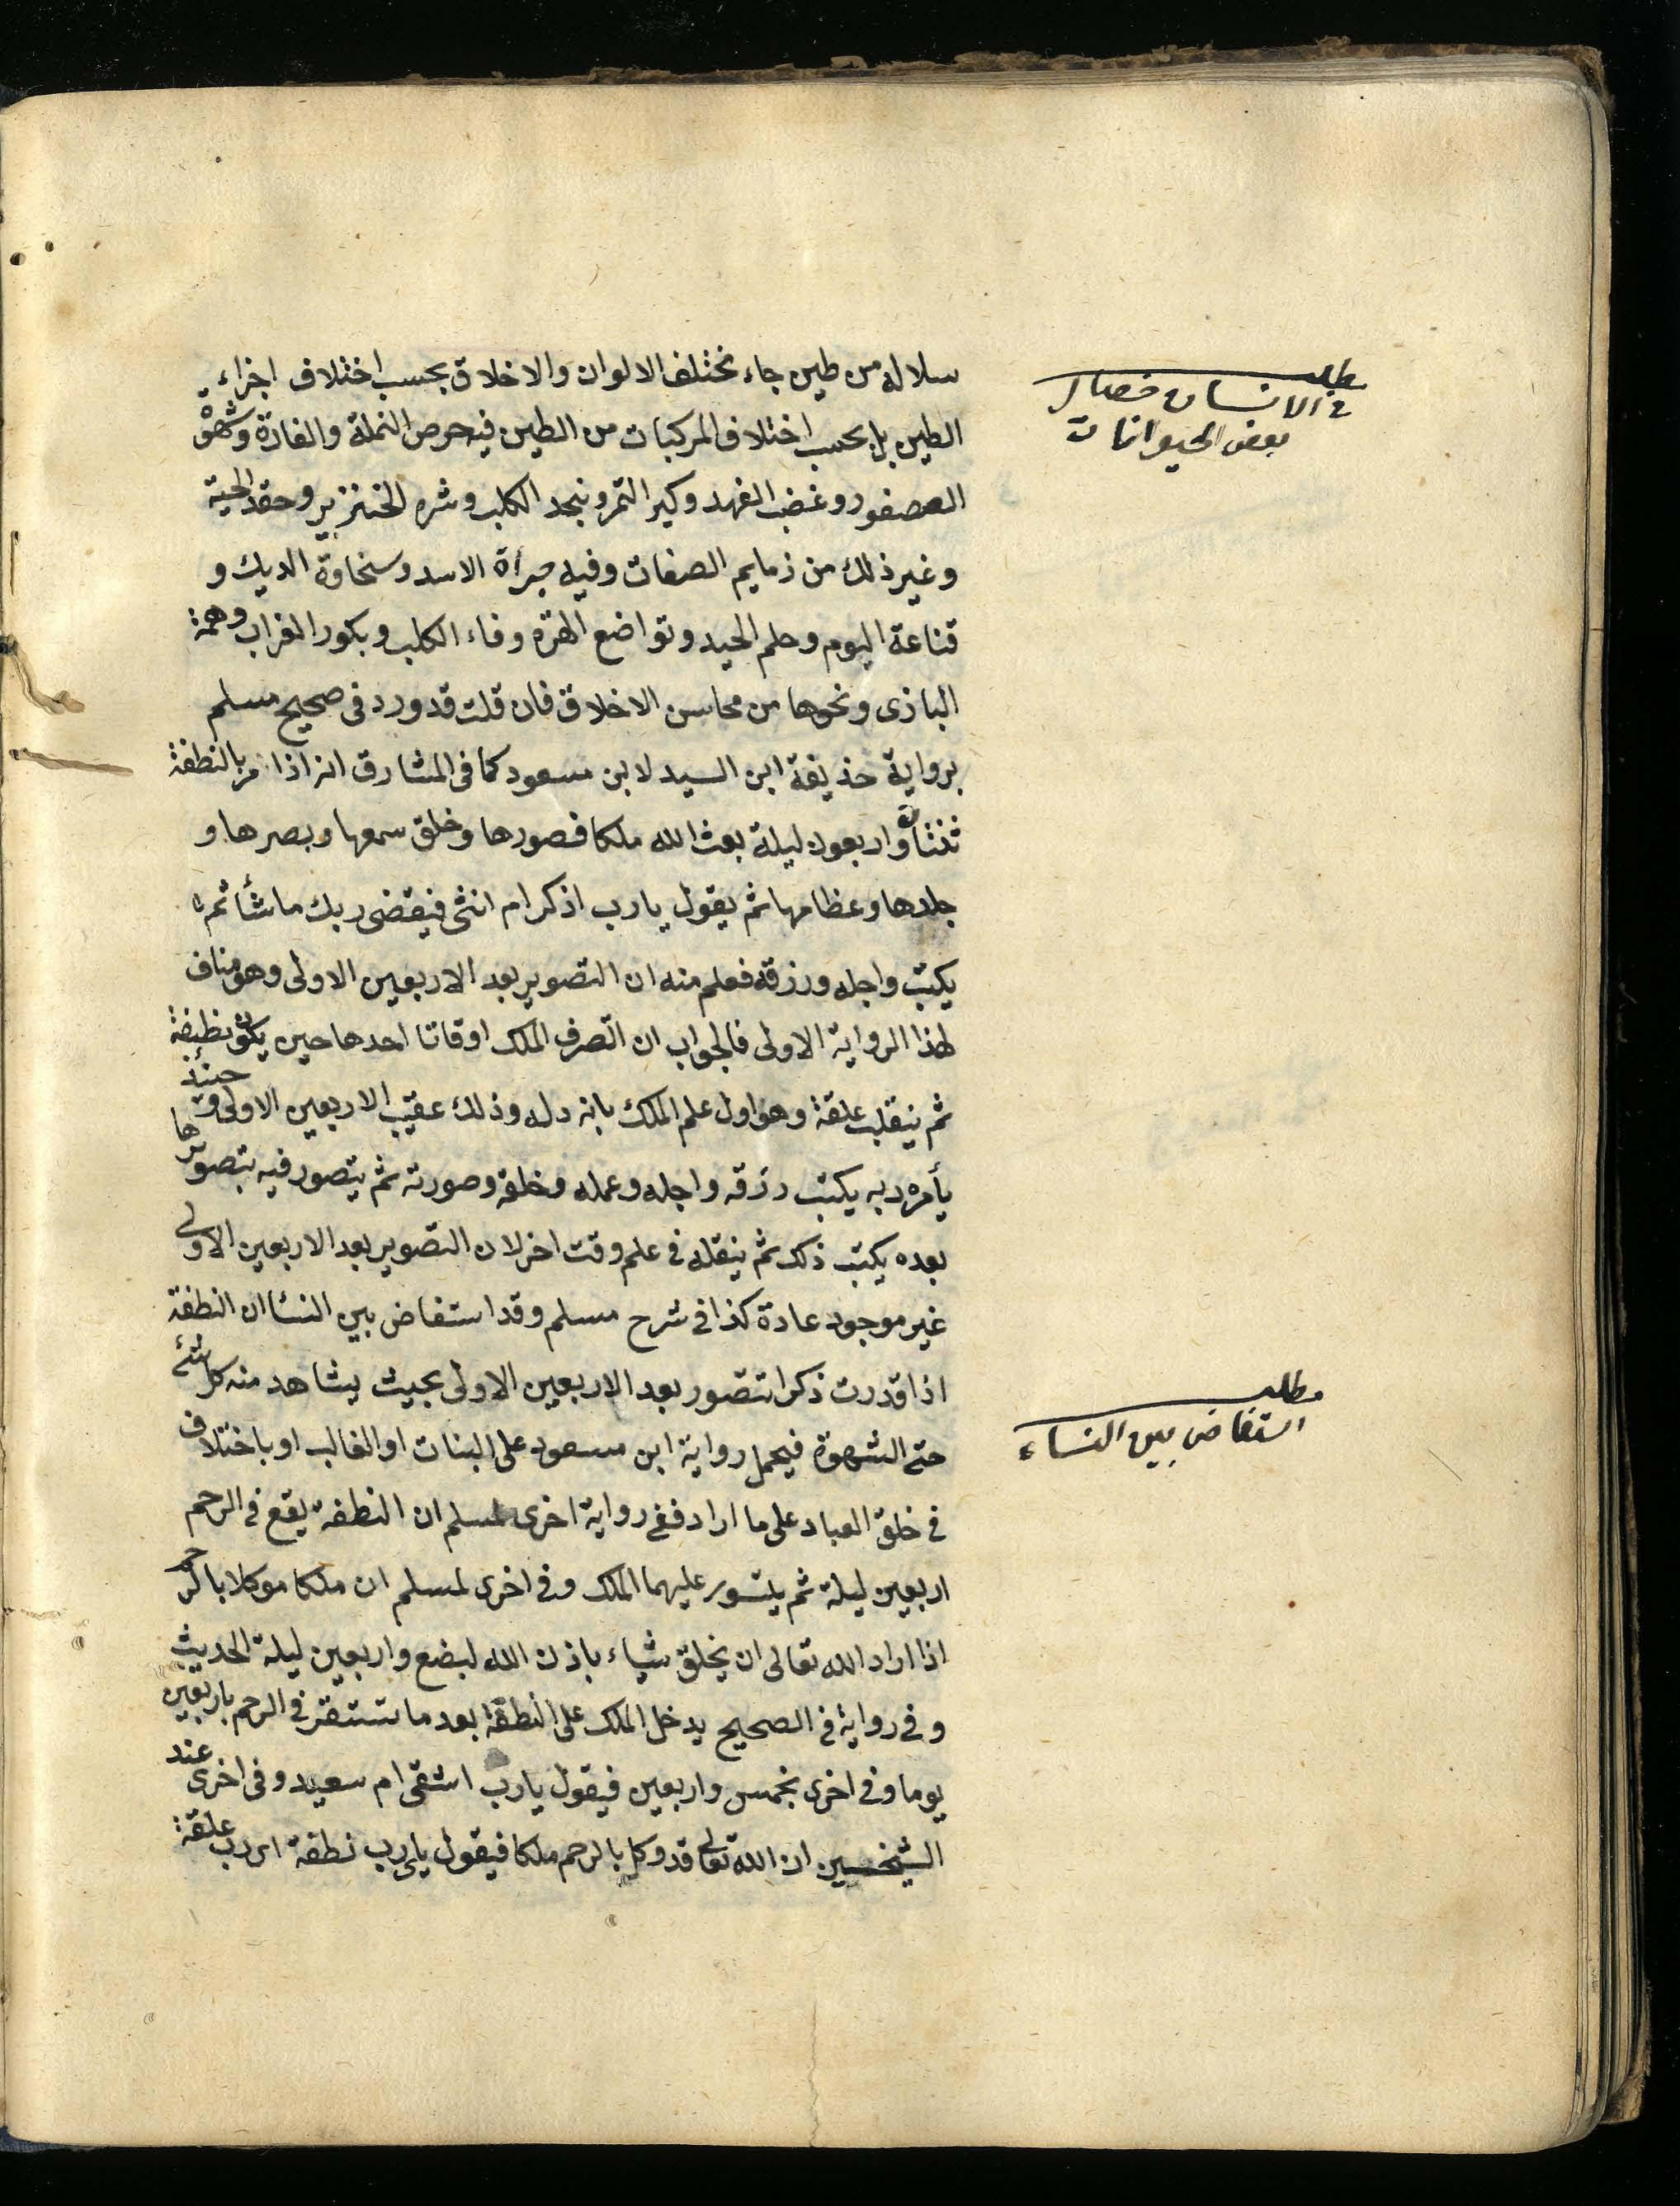 سلاله من طين جاء مختلف الالوان والاخلاق بحسب اختلاف اجزاء
الطين بل بحسب اختلاف المركبات من الطين فيه حرص النملة والفارة وشهوة
العصفور وغضب الفهد وكبر النمر وبخد الكلب وشره الخنزير وحقد الحية
وغير ذلك من ذمايم الصفات وفيه جرأة الاسد وسخاوة الديك و
قناعة البوم وحلم الحيد وتواضع الهرة وفاء الكلب وبكور الغراب وهمة
البازى ونحوها من محاسن الاخلاق فان قلت قد ورد فى صحيح مسلم
برواية حذيفة ابن السيد لابن مسعود كما فى المشارق انه اذا مر بالنطفة
ثنتان واربعون ليلة بعث الله ملكا فصورها وخلق سمعها وبصرها و
جلدها وعظامها ثم يقول يا رب اذكر ام انثى فيقضى ربك ما شأ ثم
يكتب واجله ورزقه فعلم منه ان التصوير بعد الاربعين الاولى وهو مناف
لهذا الرواية الاولى فالجواب ان التصرف الملك اوقاتا احدها حين يكون نطفة
ثم ينقلب علقة وهو اول علم الملك بانه دله وذلك عقيب الاربعين الاولى وحينئذ
يأمره ربه يكتب رزقه واجله وعمله وخلقه وصورته ثم يتصور فيه بتصويرها
بعده يكتب ذلك ثم ينقله فى علم وقت اخر لان التصوير بعد الاربعين الاولى
غير موجود عادة كذا فى شرح مسلم وقد استفاض بين النسا ان النطفة
اذا قدرت ذكرا تتصور بعد الاربعين الاولى بحيث يشاهد منه كل شئ
حتى الشهوة فيحمل رواية ابن مسعود على البنات او الغالب او باختلاف
فى خلق العباد على ما اراد ففى رواية اخرى لمسلم ان النطفة يقع فى الرحم
اربعين ليلة ثم يتسور عليهما الملك وفى اخرى لمسلم ان ملكا موكلا بالرحم
اذا اراد الله تعالى ان يخلق شياء باذن الله لبضع واربعين ليلة الحديث
وفى رواية فى الصحيح يدخل الملك على النطفة بعد ما تستقر فى الرحم باربعين
يوما وفى اخرى بخمس واربعين فيقول يا رب اشقى ام سعيد وفى اخرى عند
الشيخين ان الله تعالى قد وكل بالرحم ملكا فيقول يا رب نطفة اى رب علقة
مطلب
فى الانسان خصال
بعض الحيوانات
مطلب
استفاض بين النساء